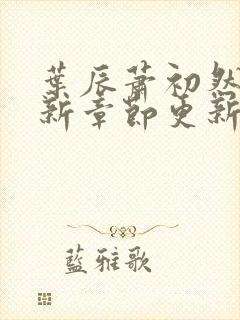 葉辰蕭初然
新章節更新
藍雅歌